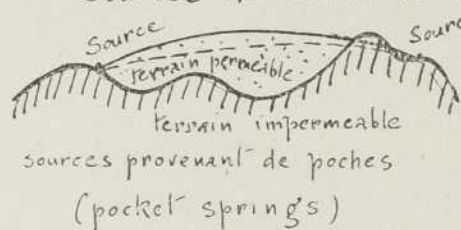 Source
Source
terrain permeable
terrain impermeable
sources provenant de poches
(pocket springs)